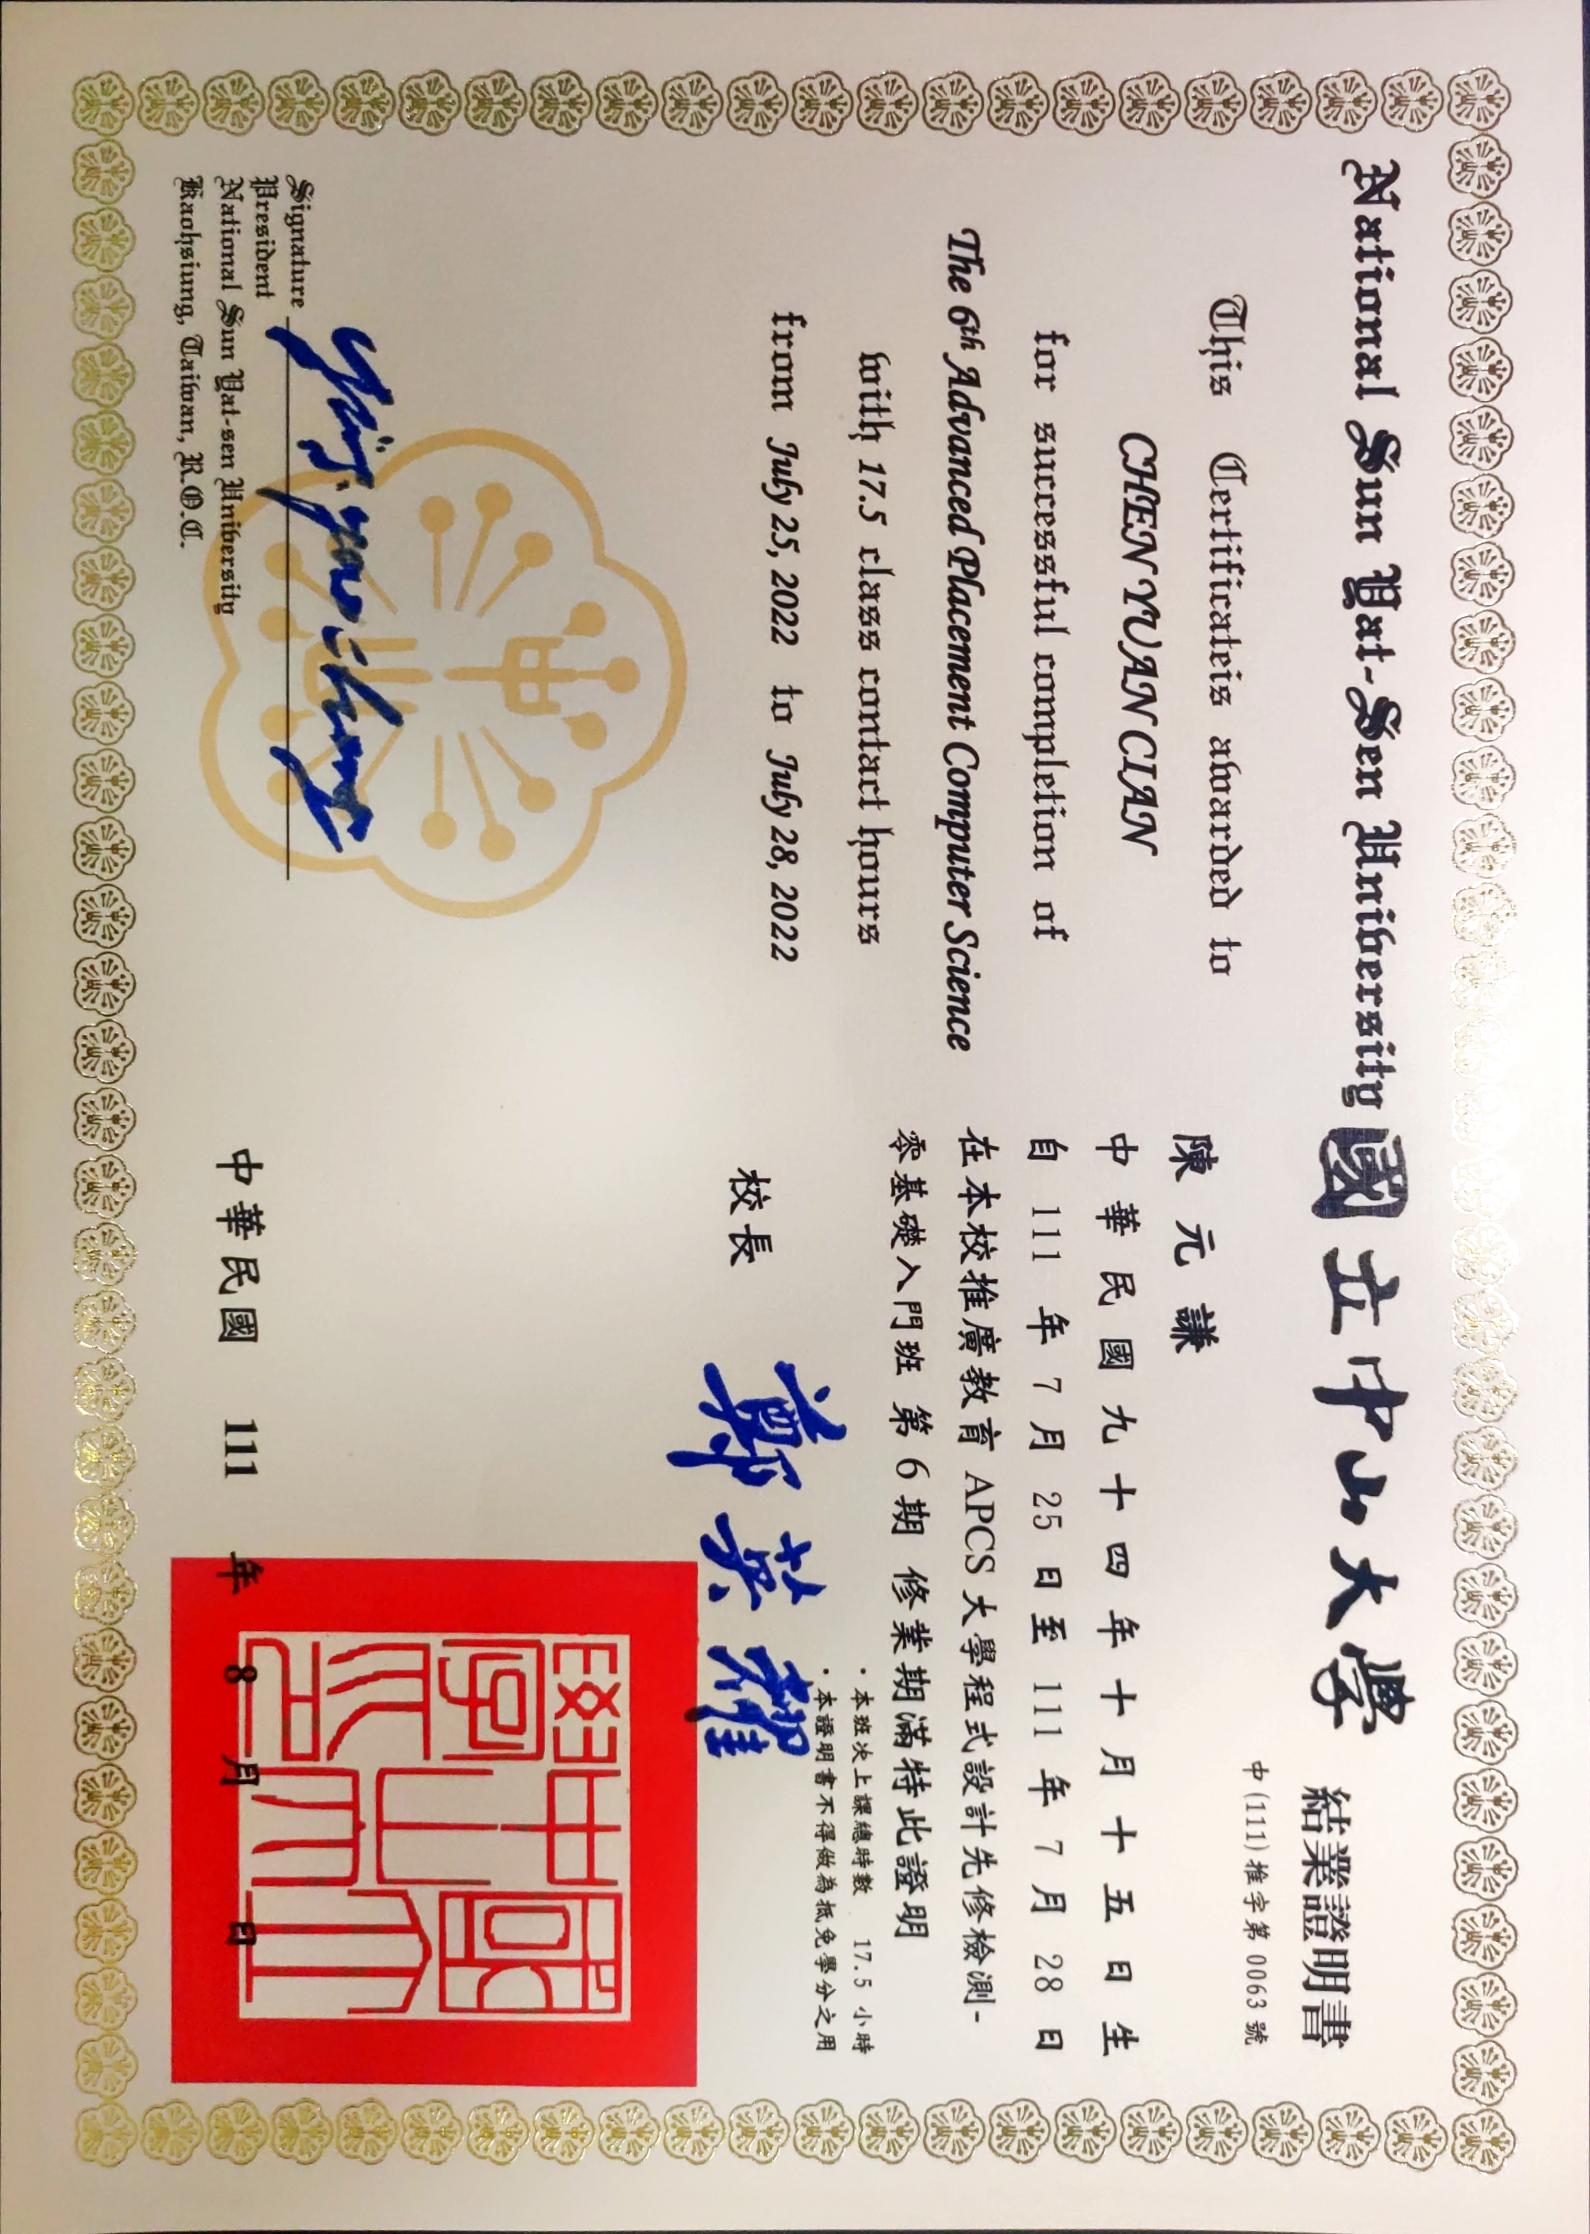 National Sun Yat-Sen University
This Certificateis awarded to
CHEN YUAN CIAN
for successful completion of
The 6th Advanced Placement Computer Science
with 17.5 class contact hours
from July 25, 2022 to July 28, 2022
Signature
President
National Sun Yat-sen University
Kaohsiung, Taiwan, R.O.C.
國立中山大學 結業證明書
中(111)推字第 0063 號
陳元謙
中華民國九十四年十月十五日生
自 111 年 7 月 25 日至 111 年 7 月 28 日
在本校推廣教育 APCS 大學程式設計先修檢測-
零基礎入門班 第 6 期 修業期滿特此證明
・本班次上課總時數 17.5 小時
・本證明書不得做為抵免學分之用
校長 鄭英耀
中華民國 111 年 8 月 日